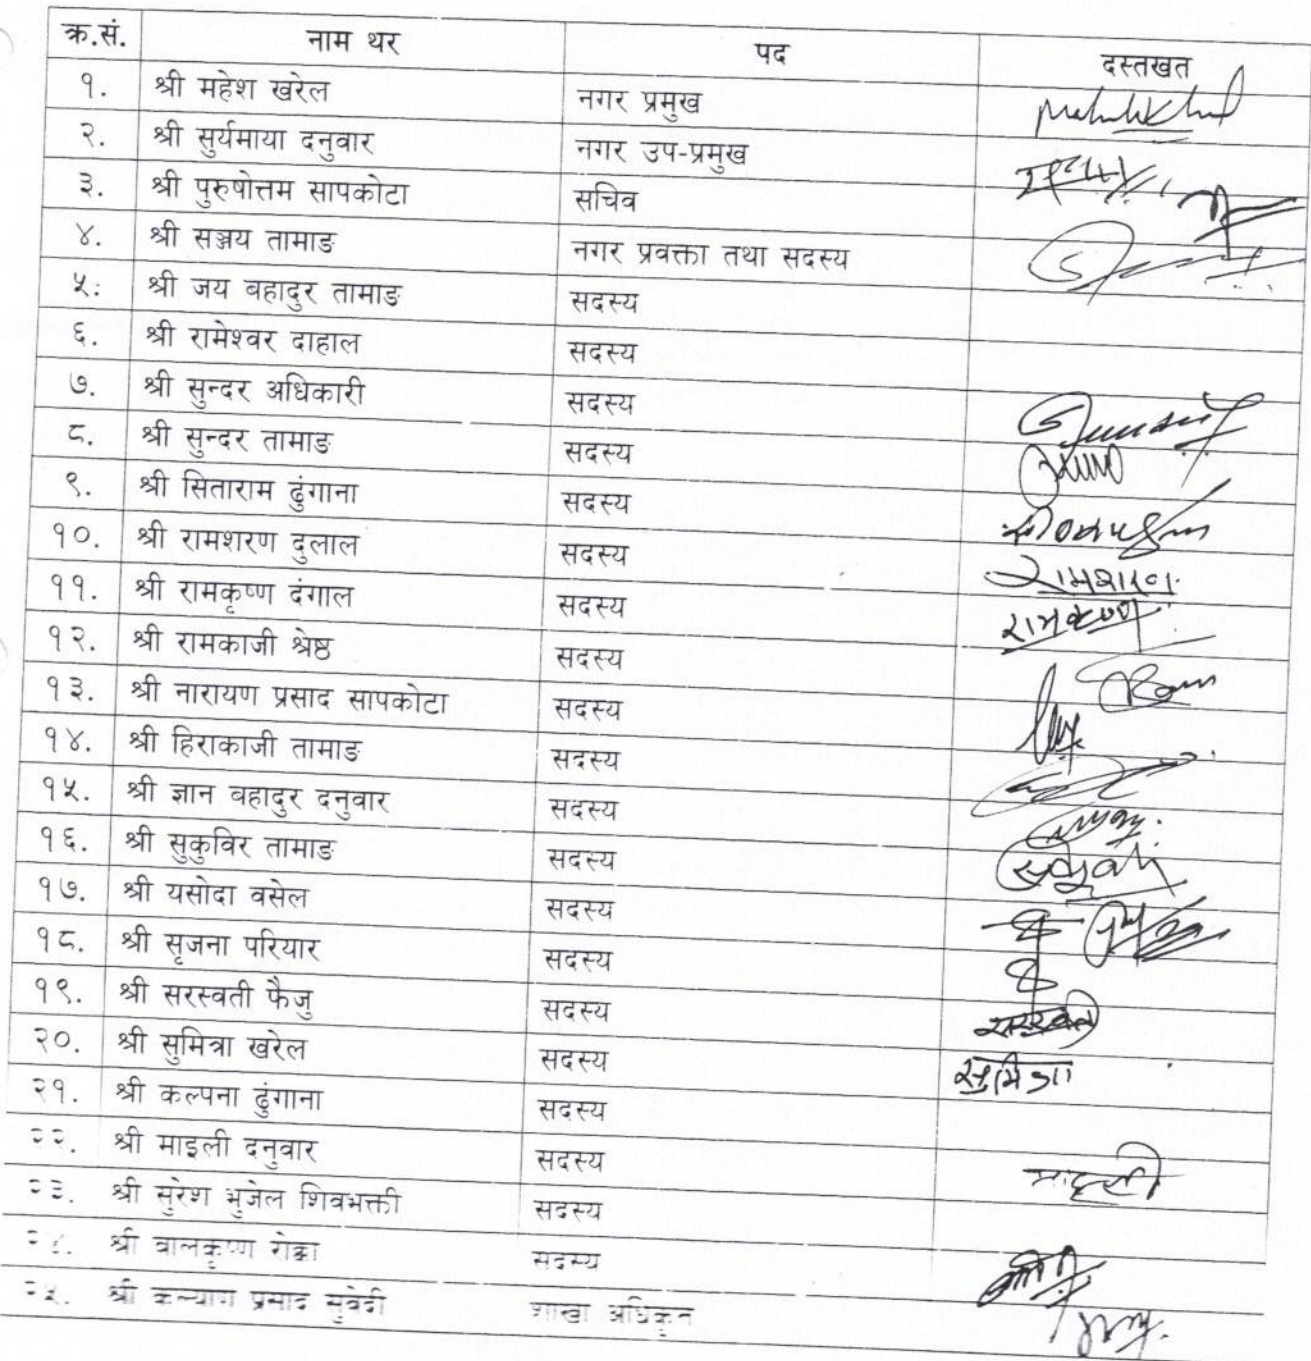 क्र.सं. नाम थर पद दस्तखत
१. श्री महेश खरेल नगर प्रमुख
२. श्री सुर्यमाया दनुवार नगर उप-प्रमुख
३. श्री पुरुषोत्तम सापकोटा सचिव
४. श्री सञ्जय तामाङ नगर प्रवक्ता तथा सदस्य
५. श्री जय वहादुर तामाङ सदस्य
६. श्री रामेश्वर दाहाल सदस्य
७. श्री सुन्दर अधिकारी सदस्य
८. श्री सुन्दर तामाङ सदस्य
९. श्री सिताराम ढुंगाना सदस्य
१०. श्री रामशरण दुलाल सदस्य रामशरण
११. श्री रामकृष्ण दंगाल सदस्य रामकृष्ण
१२. श्री रामकाजी श्रेष्ठ सदस्य Ram
१३. श्री नारायण प्रसाद सापकोटा सदस्य
१४. श्री हिराकाजी तामाङ सदस्य
१५. श्री ज्ञान वहादुर दनुवार सदस्य
१६. श्री सुकुविर तामाङ सदस्य
१७. श्री यसोदा वसेल सदस्य
१८. श्री सृजना परियार सदस्य
१९. श्री सरस्वती फैजु सदस्य सरस्वती
२०. श्री सुमित्रा खरेल सदस्य सुमित्रा
२१. श्री कल्पना ढुंगाना सदस्य
२२. श्री माइली दनुवार सदस्य माइली
२३. श्री सुरेश भुजेल शिवभक्ती सदस्य
२४. श्री वालकृष्ण रोक्का सदस्य
२५. श्री कल्याण प्रसाद सुवेदी शाखा अधिकृत